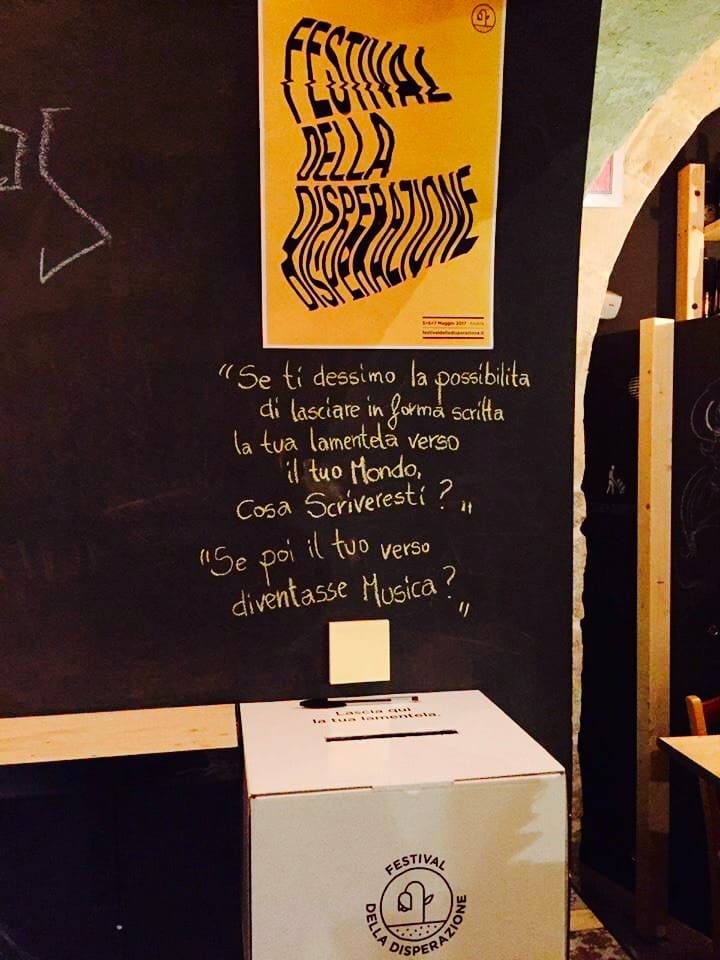 FESTIVAL
DELLA
DISPERAZIONE
5+6+7 Maggio 2017 - Andria
festivaldelladisperazione.it
“Se ti dessimo la possibilita
di lasciare in forma scritta
la tua lamentela verso
il tuo Mondo,
Cosa Scriveresti ? „
“Se poi il tuo verso
diventasse Musica? „
Lascia qui
la tua lamentela.
FESTIVAL
DELLA DISPERAZIONE